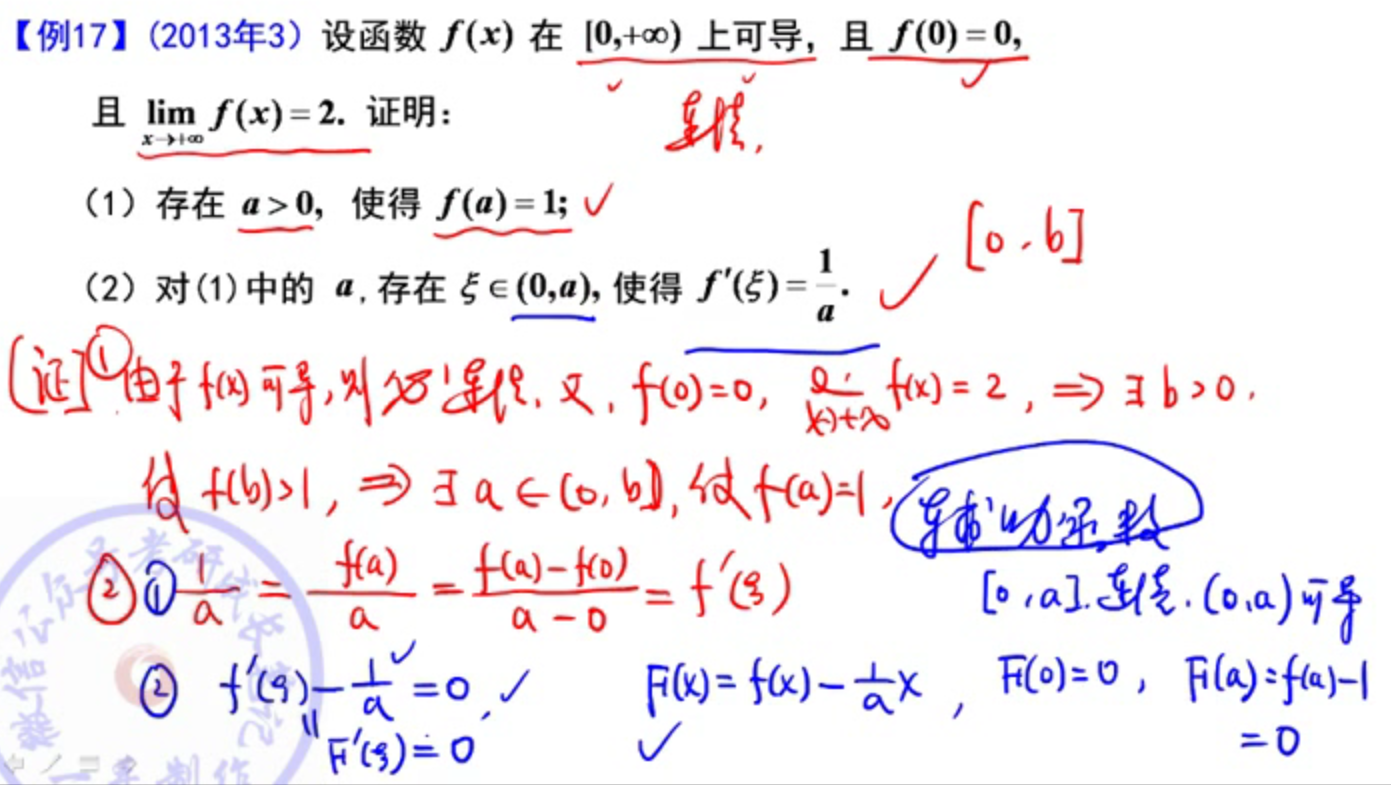 【例17】(2013年3) 设函数 f(x) 在 [0,+∞) 上可导, 且 f(0)=0,
且 lim f(x)=2. 证明:
x→+∞
连续.
(1) 存在 a>0, 使得 f(a)=1;
[0, b]
(2) 对(1)中的 a, 存在 ξ∈(0,a), 使得 f′(ξ)=1/a.
[证] ① 由于 f(x) 可导, 则 必 连续. 又. f(0)=0, lim f(x)=2, ⇒ ∃ b>0.
x→+∞
使 f(b)>1, ⇒ ∃ a∈(0, b), 使 f(a)=1,
辅助函数
② ① 1/a = f(a)/a = (f(a)-f(0))/(a-0) = f′(ξ)
[0, a]. 连续. (0,a) 可导
② f′(ξ) - 1/a = 0, F(x)=f(x)-1/a x, F(0)=0, F(a)=f(a)-1
F′(ξ)=0 =0